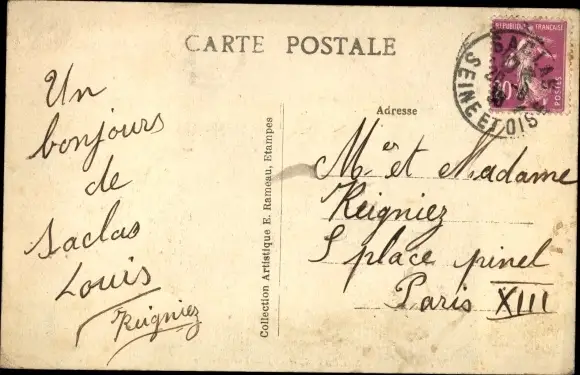 CARTE POSTALE
Un
bonjours
de
Saclas
Louis
Reigniez
Collection Artistique E. Rameau, Etampes
Adresse
Mer et Madame
Reigniez
5 place pinel
Paris XIII
REPUBLIQUE FRANÇAISE
POSTES
SACLAS
SEINE ET OISE